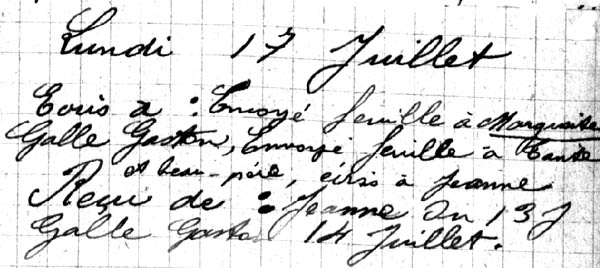 Lundi 17 Juillet
Ecris a : Envoyé feuille à Marguerite
Galle Gaston, Envoyé feuille à Tante
et beau-père, à Jeanne
Reçu de : Jeanne du 13 J
Galle Gaston 14 Juillet.